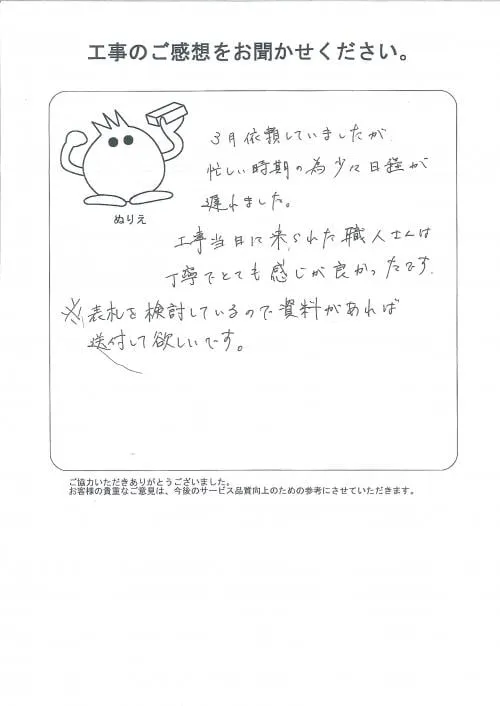 工事のご感想をお聞かせください。
3月依頼していましたが、
忙しい時期の為少々日程が
遅れました。
ぬりえ
工事当日に来られた職人さんは
丁寧でとても感じが良かったです。
※表札を検討しているので資料があれば
送付して欲しいです。
ご協力いただきありがとうございました。
お客様の貴重なご意見は、今後のサービス品質向上のための参考にさせていただきます。